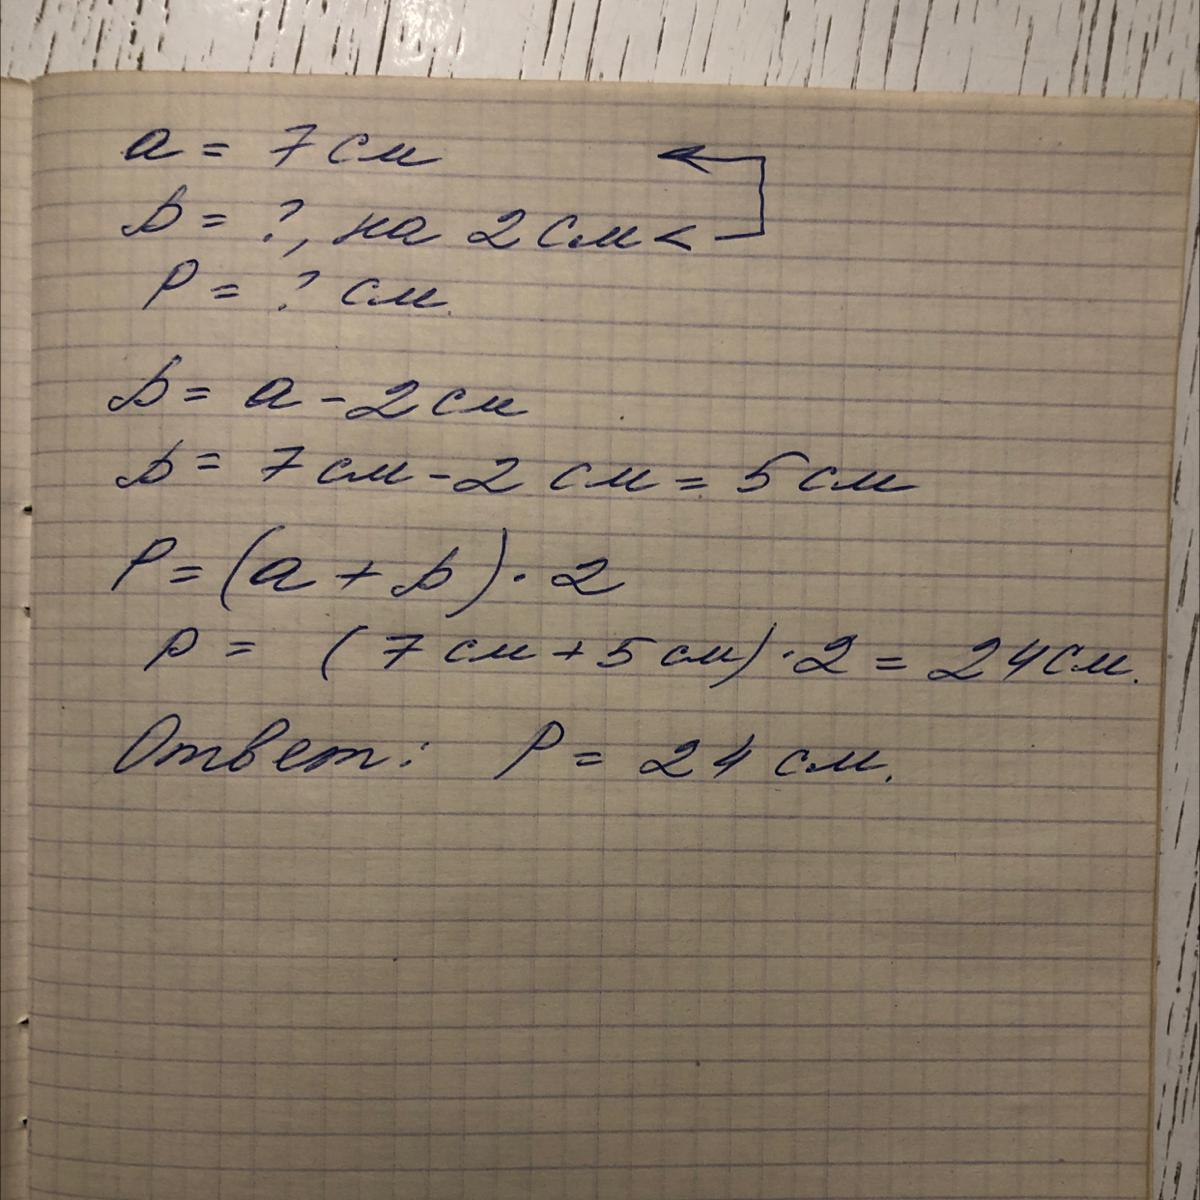 a = 7 см
b = ?, на 2 см <
P = ? см.
b = a - 2 см
b = 7 см - 2 см = 5 см
P = (a + b) · 2
p = (7 см + 5 см) · 2 = 24 см.
Ответ: P = 24 см.